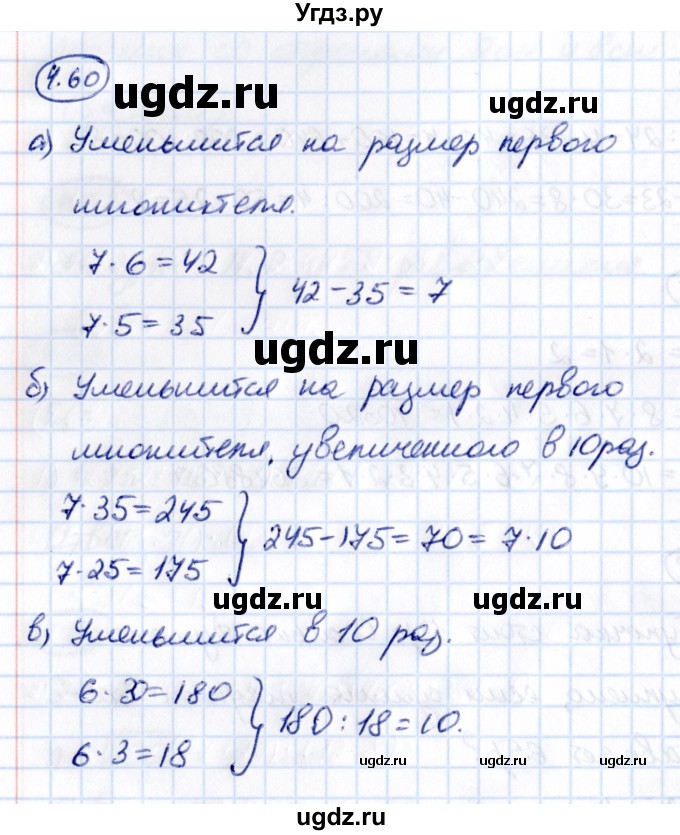 Угдз.ру
4.60
ugdz.ru
ugdz.ru
а) Уменьшится на размер первого
множителя.
7·6=42
7·5=35
42-35=7
ugdz.ru
б) Уменьшится на размер первого
множителя, увеличенного в 10 раз.
7·35=245
7·25=175
245-175=70=7·10
ugdz.ru
ugdz.ru
в) Уменьшится в 10 раз.
6·30=180
6·3=18
180:18=10.
ugdz.ru
ugdz.ru
ugdz.ru